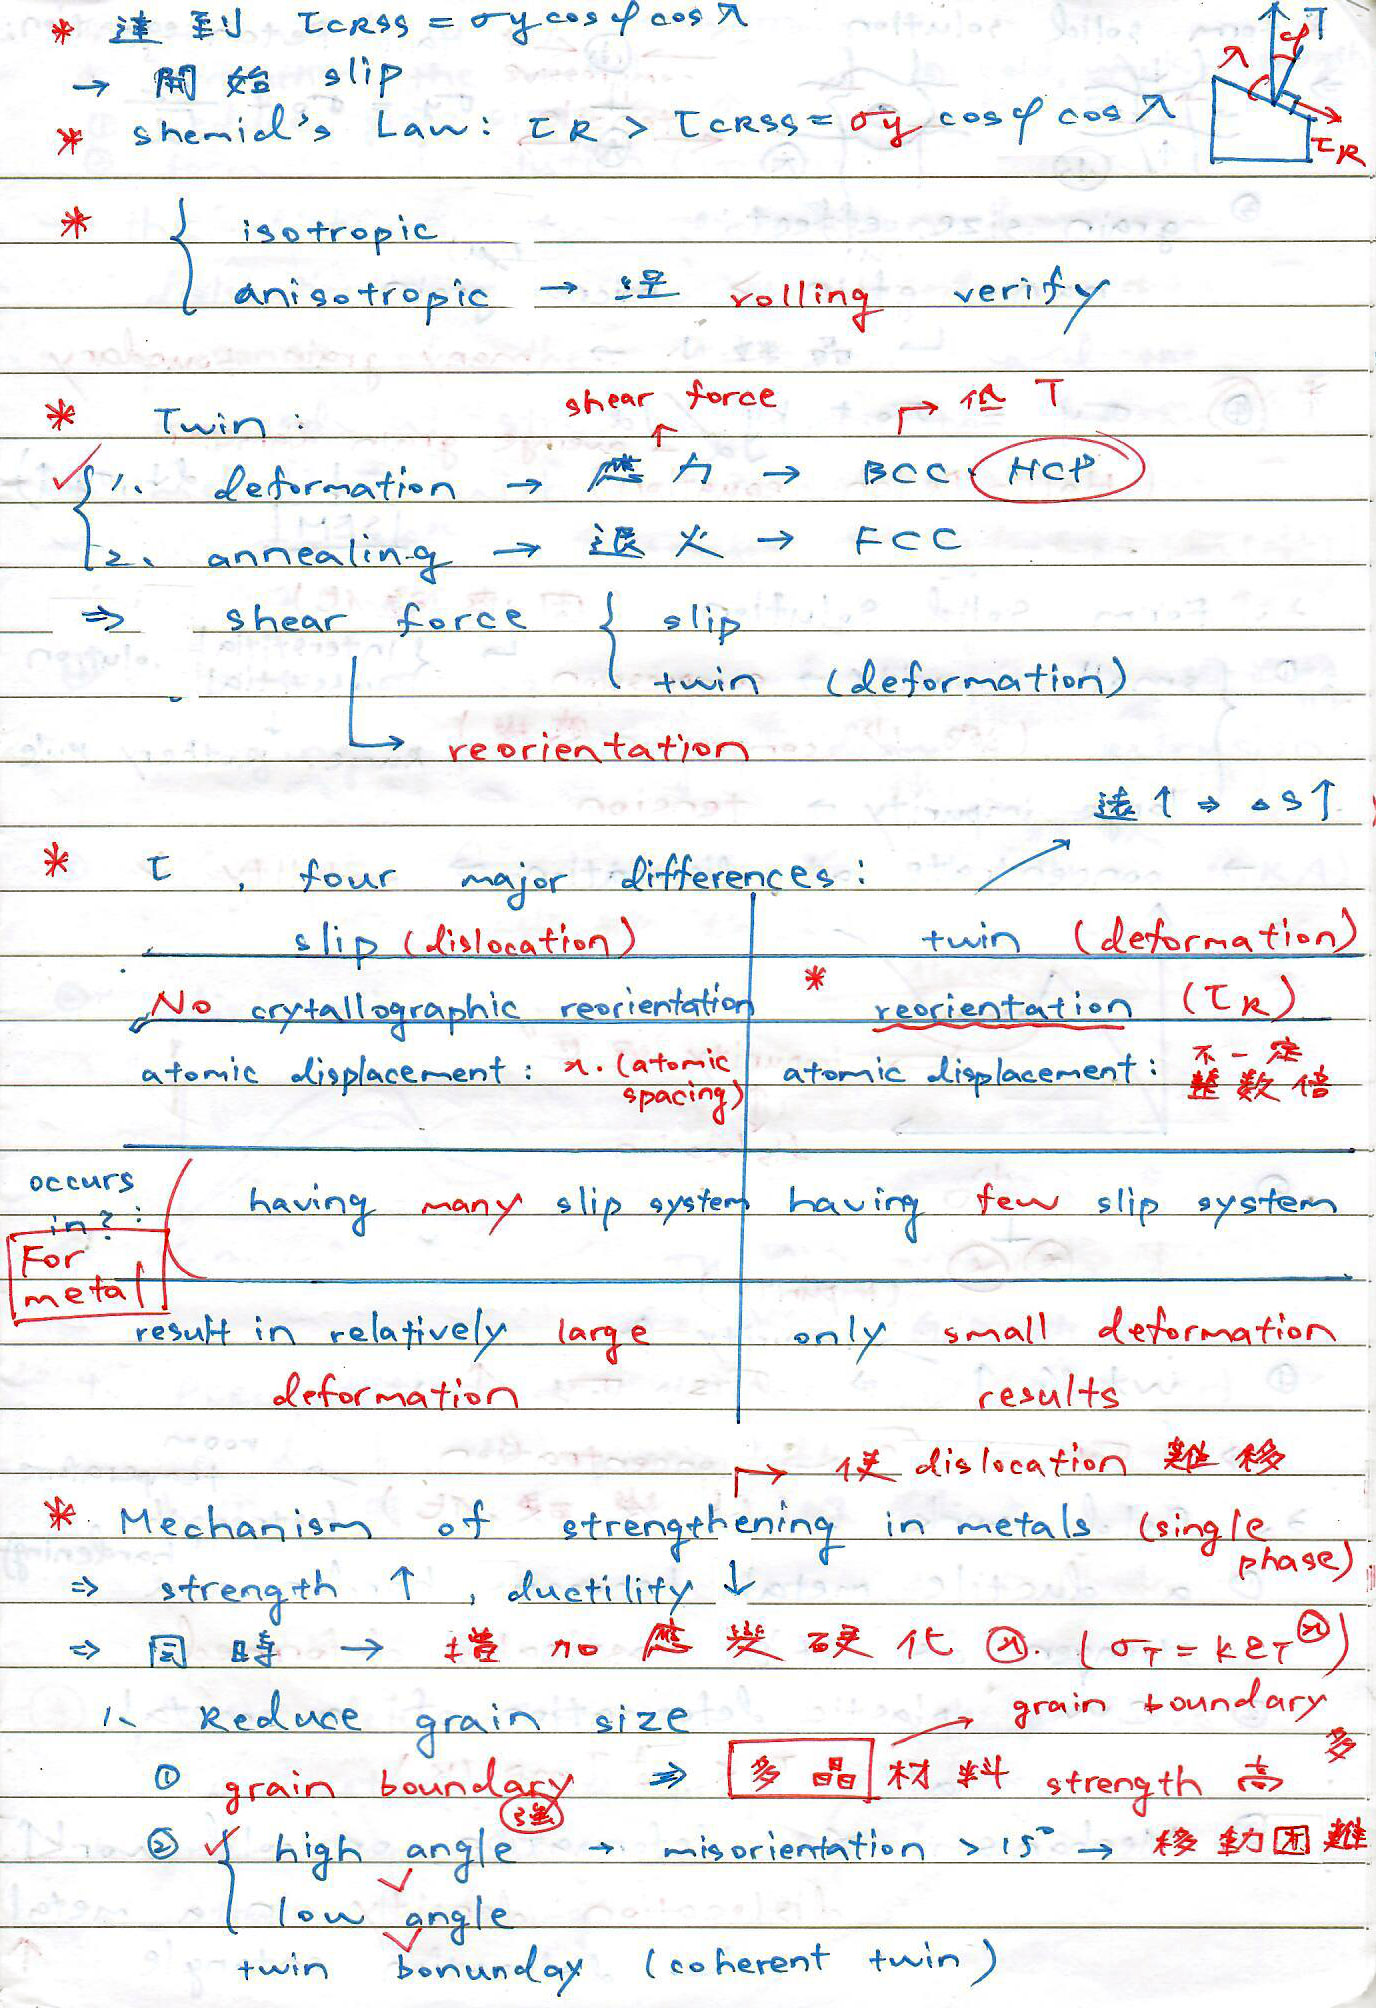 * 達到 τCRSS = σy cosφ cosλ
→ 開始 slip
* shemid's Law: τR > τCRSS = σy cosφ cosλ
T
φ
λ
τR
* isotropic
anisotropic → 經 rolling verify
shear force ↑
低 T
* Twin:
1、 deformation → 應力 → BCC. HCP
2、 annealing → 退火 → FCC
⇒ shear force { slip
twin (deformation)
reorientation
速↑ ⇒ ΔS↑
* τ , four major differences:
slip (dislocation) twin (deformation)
No crytallographic reorientation * reorientation (τR)
atomic displacement: n. (atomic spacing) atomic displacement: 不一定整數倍
occurs in?: having many slip system having few slip system
For metal
result in relatively large deformation only small deformation results
使 dislocation 難移
* Mechanism of strengthening in metals (single phase)
⇒ strength ↑ , ductility ↓
⇒ 同時 → 增加應變硬化 n. (σT = kεT^n)
1、 Reduce grain size
grain boundary 多
① grain boundary ⇒ 多晶材料 strength 高
強
② high angle → misorientation > 15° → 移動困難
low angle
twin bonunday (coherent twin)